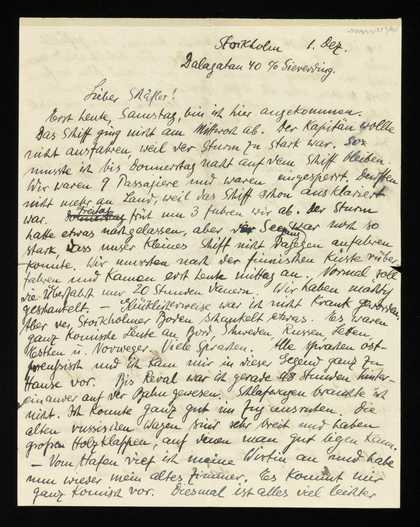 Stockholm 1. Dez.
Dalagatan 40 % Sieverding.
Lieber Schäfler!
Erst heute, Samstag, bin ich hier angekommen.
Das Schiff ging nicht am Mittwoch ab. Der Kapitän wollte
nicht ausfahren, weil der Sturm zu stark war. So
musste ich bis Donnerstag nacht auf dem Schiff bleiben.
Wir waren 9 Passagiere und waren eingesperrt. Durften
nicht mehr an Land, weil das Schiff schon ausklariert
war. Freitag früh um 3 fuhren wir ab. Der Sturm
hatte etwas nachgelassen, aber der Seegang war noch so
stark, dass unser kleines Schiff nicht dagegen anfahren
konnte. Wir mussten nach der finnischen Küste rüber
fahren und kamen erst heute mittag an. Normal soll
die Überfahrt nur 20 Stunden dauern. Wir haben mächtig
geschaukelt. – Glücklicherweise war ich nicht krank geworden.
Aber der Stockholmer Boden schaukelt etwas. Es waren
ganz komische Leute an Bord, Schweden Russen Letten
Esthen u. Norweger. Viele Sprachen. Alle sprachen ost-
preussisch und ich kam mir in dieser Gegend ganz zu
Hause vor. Bis Reval war ich gerade 48 Stunden hinter-
einander auf der Bahn gewesen. Schlafwagen brauchte ich
nicht. Ich konnte ganz gut im Zug ausruhen. Die
alten russischen Wagen sind sehr breit und haben
grosse Holzklappen, auf denen man gut liegen kann.
– Vom Hafen rief ich meine Wirtin an und habe
nun wieder mein altes Zimmer. Es kommt mir
ganz komisch vor. Diesmal ist alles viel leichter